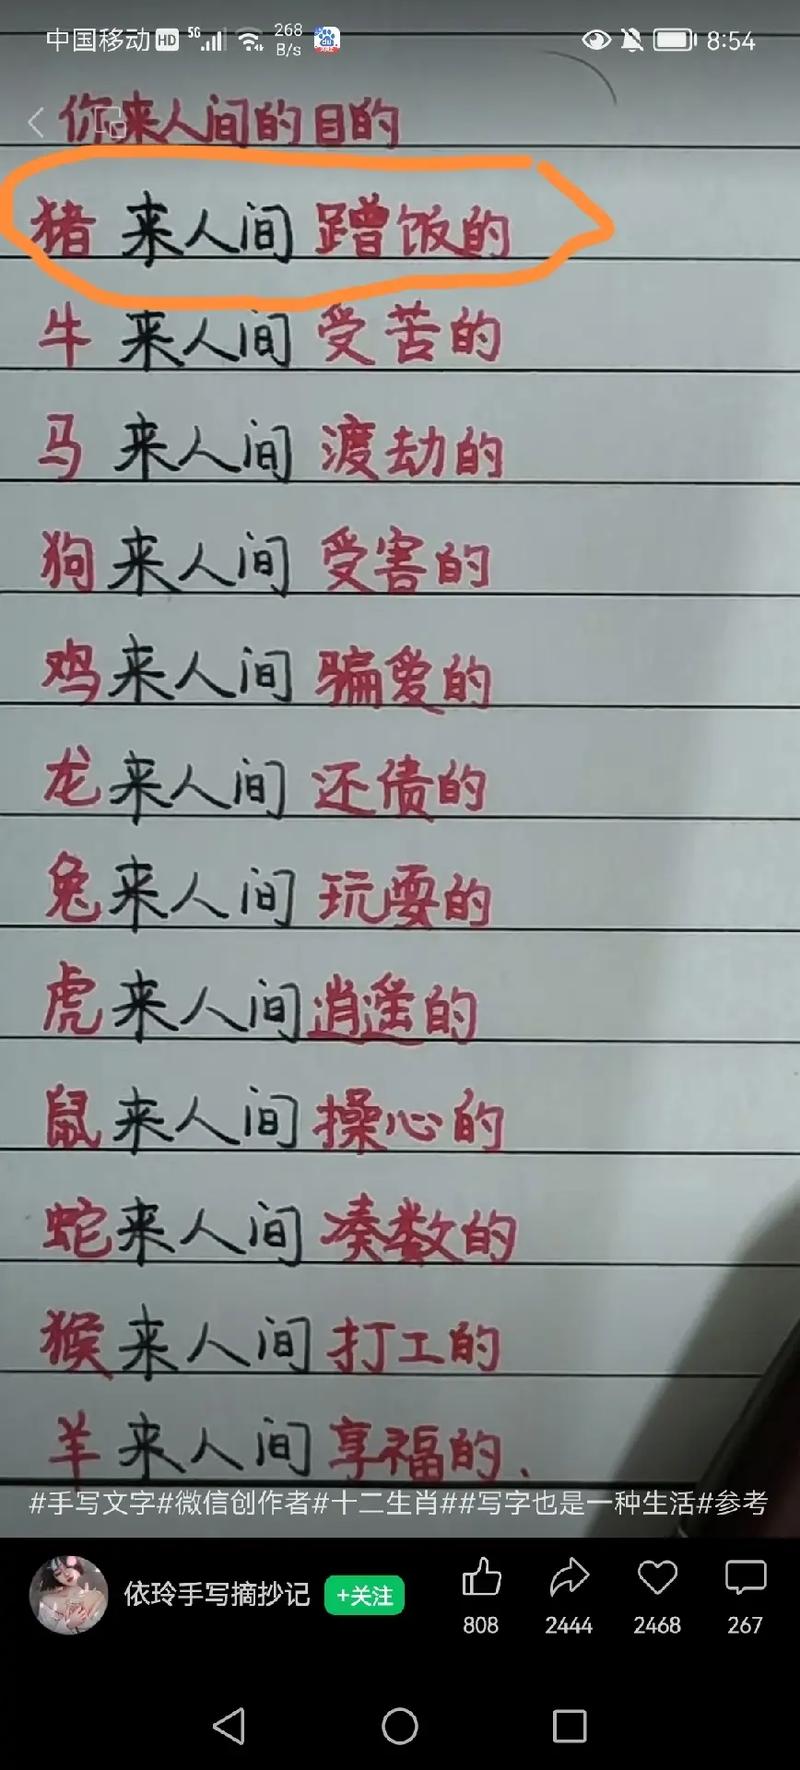 中国移动 HD 5G 268 B/s 8:54
你来人间的目的
猪来人间蹭饭的
牛来人间受苦的
马来人间渡劫的
狗来人间受害的
鸡来人间骗爱的
龙来人间还债的
兔来人间玩耍的
虎来人间逍遥的
鼠来人间操心的
蛇来人间凑数的
猴来人间打工的
羊来人间享福的、
#手写文字#微信创作者#十二生肖##写字也是一种生活#参考
依玲手写摘抄记 +关注
808 2444 2468 267